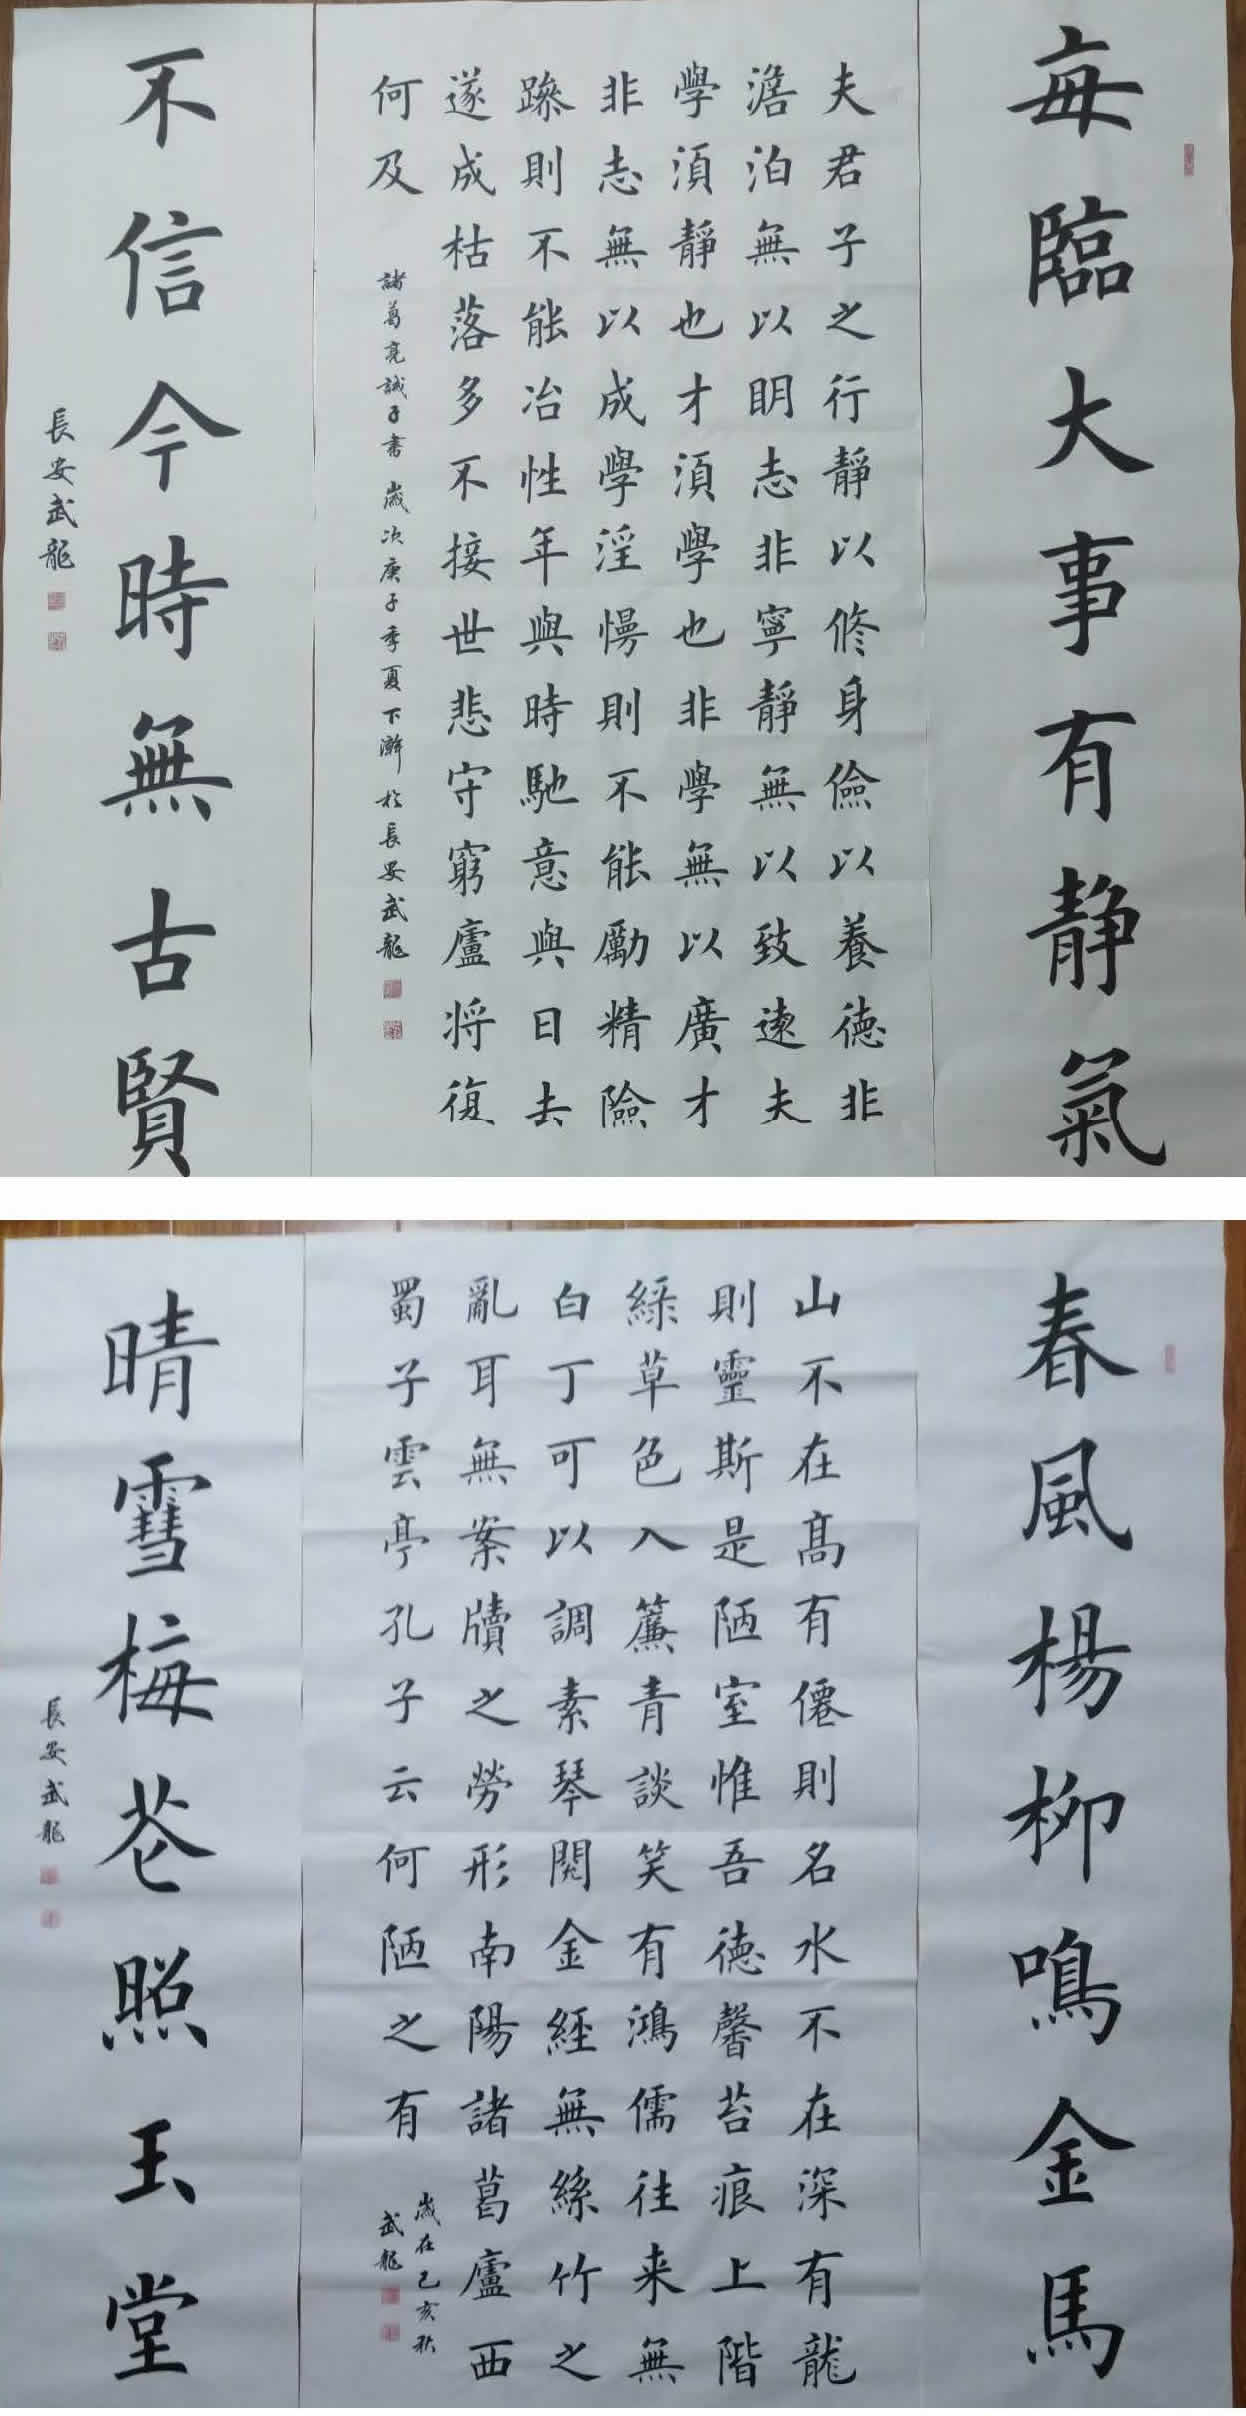 每臨大事有静氣
夫君子之行靜以修身儉以養德非
澹泊無以明志非寧靜無以致遠夫
學須靜也才須學也非學無以廣才
非志無以成學淫慢則不能勵精險
躁則不能冶性年與時馳意與日去
遂成枯落多不接世悲守窮廬将復
何及
諸葛亮誡子書 歲次庚子季夏下澣於長安武龍
不信今時無古賢
長安武龍
春風楊柳鳴金馬
山不在髙有僊則名水不在深有龍
則靈斯是陋室惟吾德馨苔痕上階
綠草色入簾青談笑有鴻儒往来無
白丁可以調素琴閱金經無絲竹之
亂耳無案牘之勞形南陽諸葛廬西
蜀子雲亭孔子云何陋之有
歲在己亥秋
武龍
晴雪梅花照玉堂
長安武龍